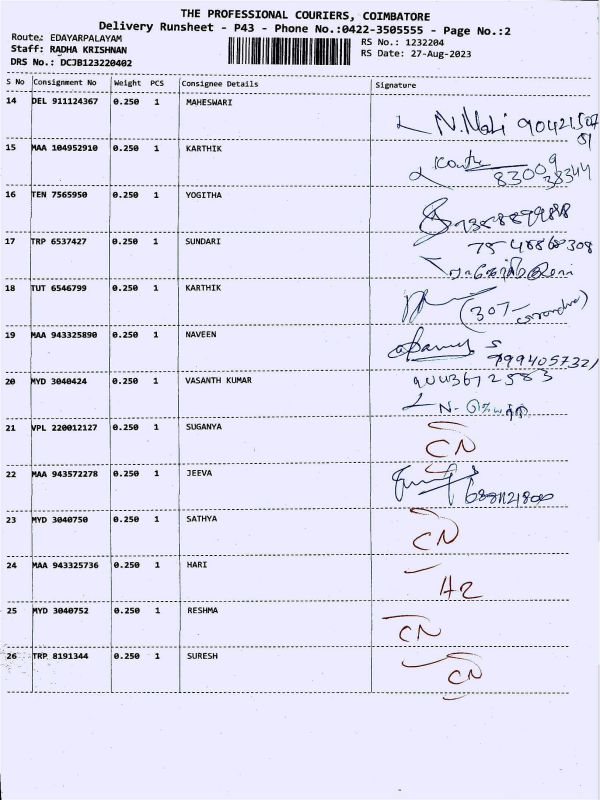 THE PROFESSIONAL COURIERS, COIMBATORE
Delivery Runsheet - P43 - Phone No.:0422-3505555 - Page No.:2
Route: EDAYARPALAYAM
RS No.: 1232204
Staff: RADHA KRISHNAN
RS Date: 27-Aug-2023
DRS No.: DCJB123220402
S No Consignment No Weight PCS Consignee Details Signature
14 DEL 911124367 0.250 1 MAHESWARI
15 MAA 104952910 0.250 1 KARTHIK
16 TEN 7565950 0.250 1 YOGITHA
17 TRP 6537427 0.250 1 SUNDARI
18 TUT 6546799 0.250 1 KARTHIK
(307-
19 MAA 943325890 0.250 1 NAVEEN
20 MYD 3040424 0.250 1 VASANTH KUMAR
9003672583
N.
21 VPL 220012127 0.250 1 SUGANYA CN
22 MAA 943572278 0.250 1 JEEVA
23 MYD 3040750 0.250 1 SATHYA CN
24 MAA 943325736 0.250 1 HARI
25 MYD 3040752 0.250 1 RESHMA CN
26 TRP 8191344 0.250 1 SURESH CN